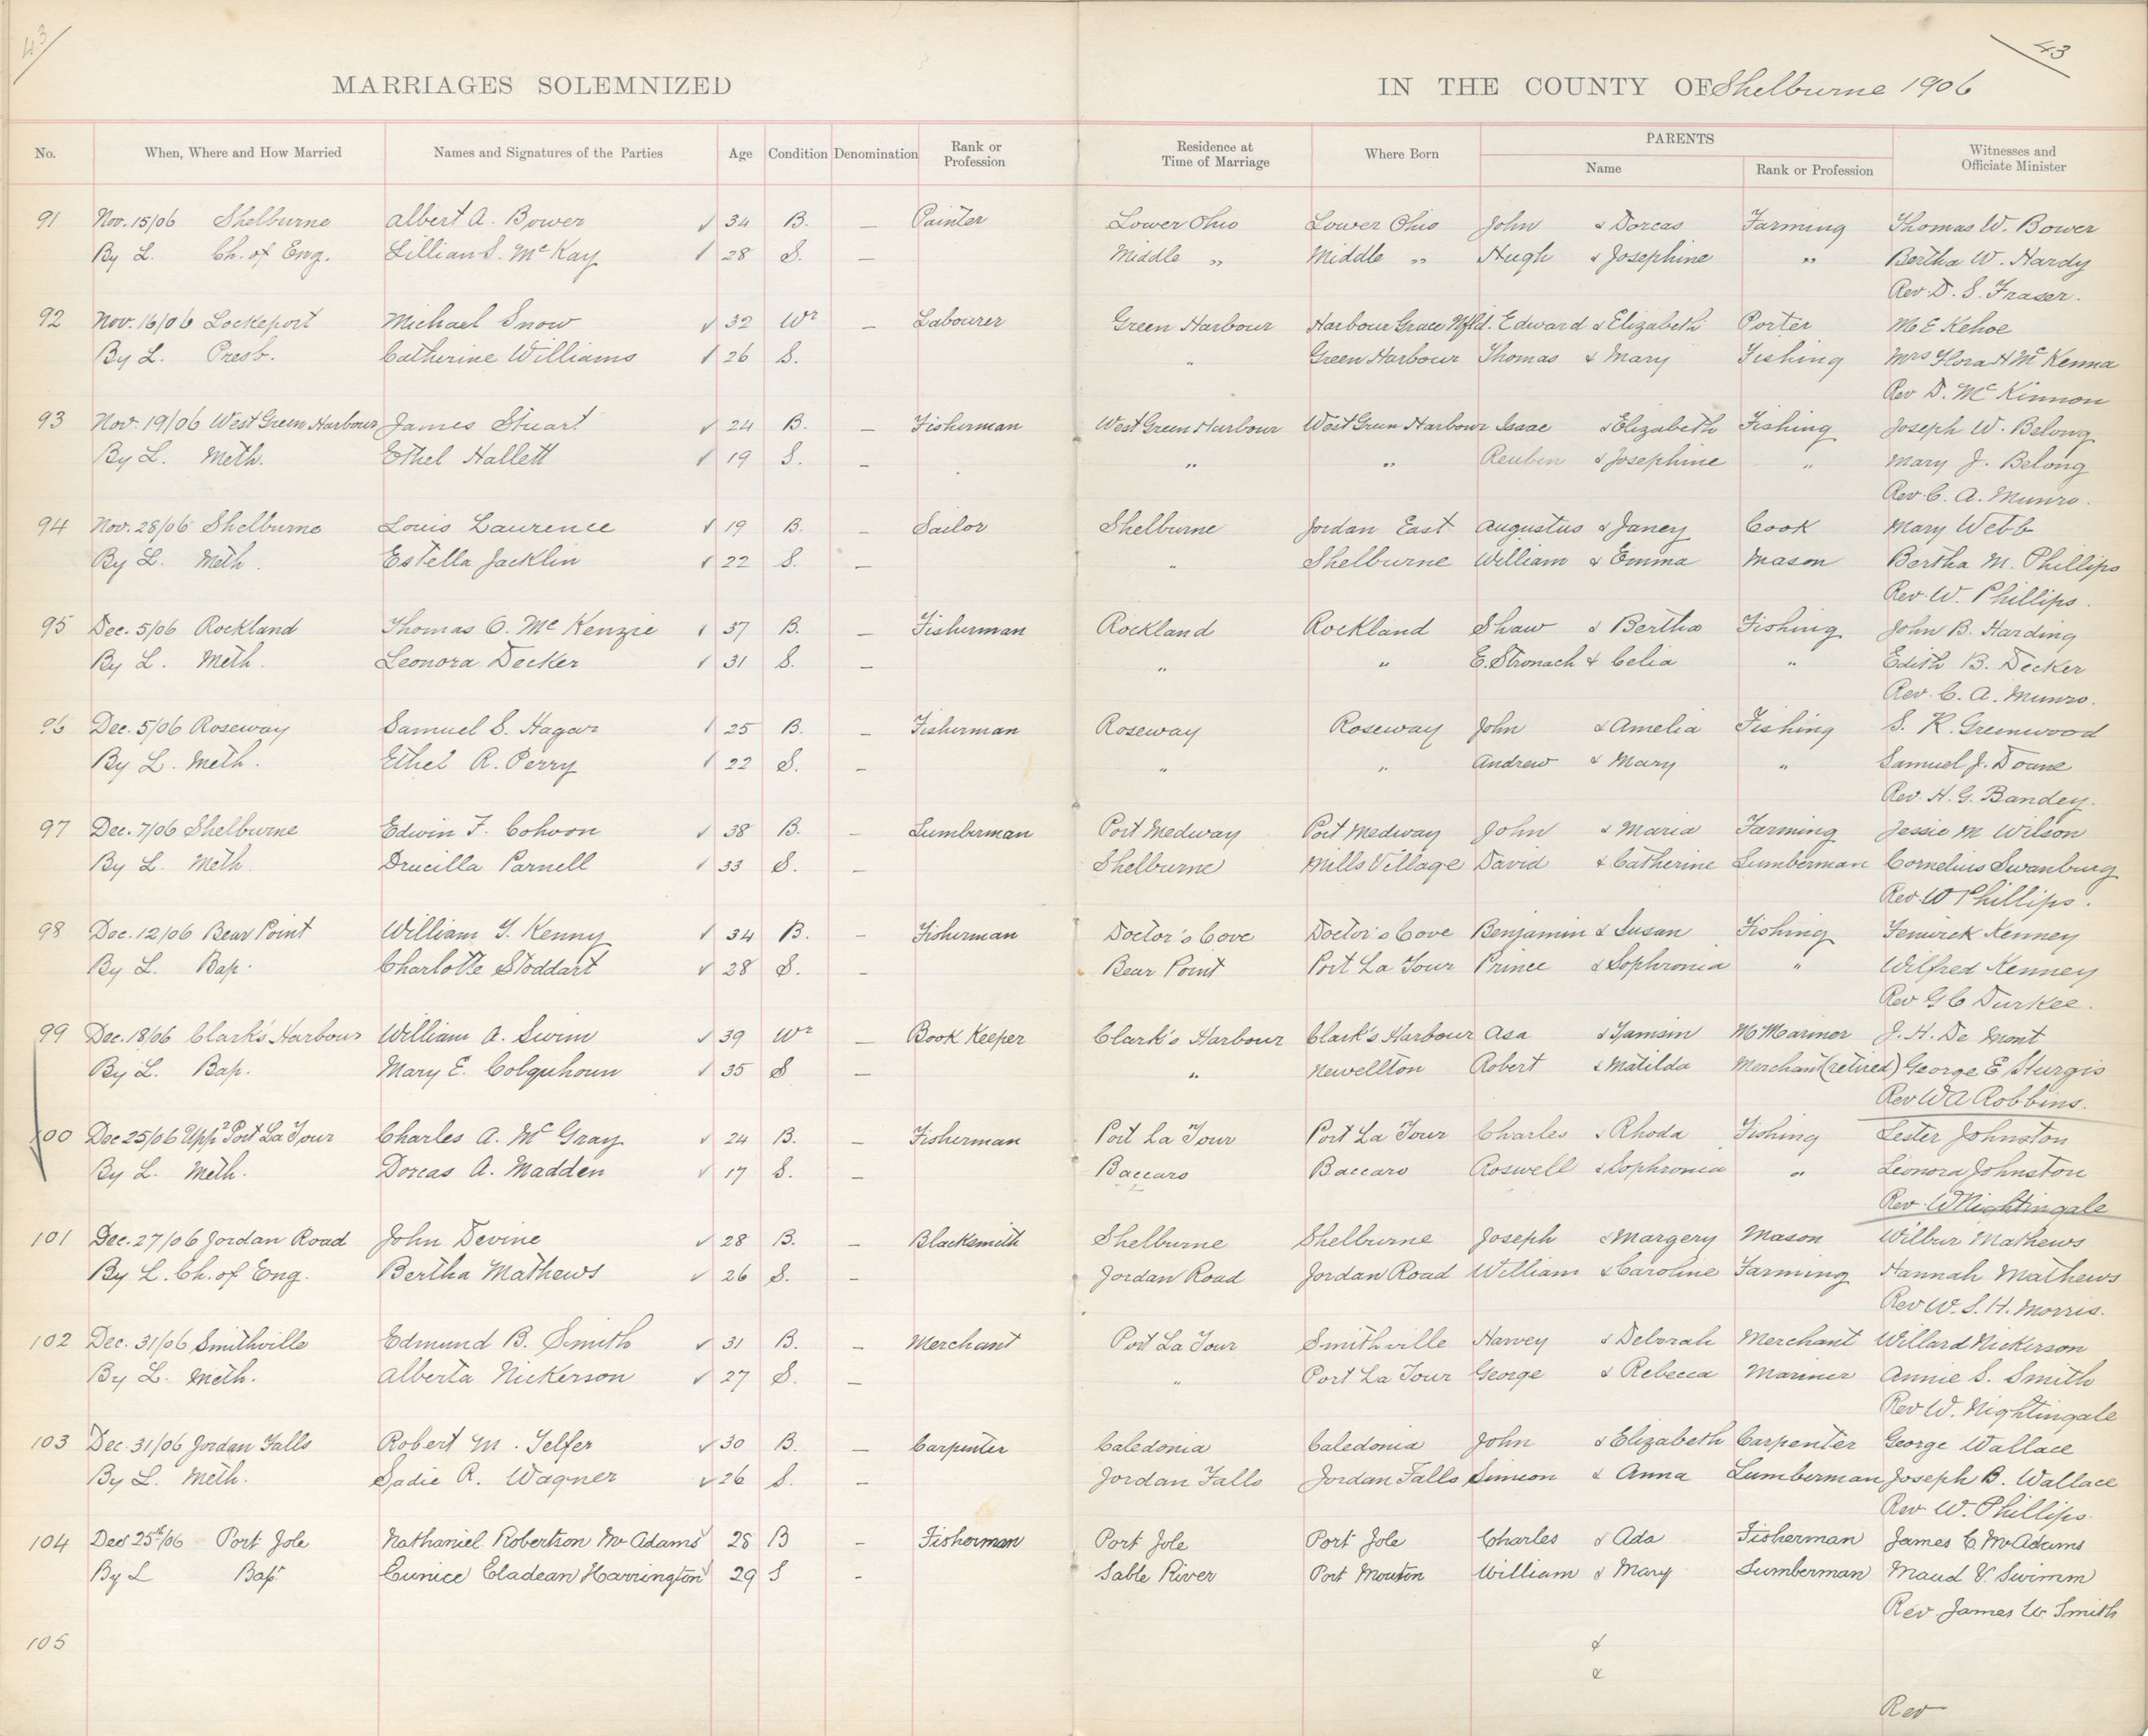 43 43
MARRIAGES SOLEMNIZED IN THE COUNTY OF Shelburne 1906
No. When, Where and How Married Names and Signatures of the Parties Age Condition Denomination Rank or Profession Residence at Time of Marriage Where Born PARENTS Name Rank or Profession Witnesses and Officiate Minister
91 Nov. 15/06 Shelburne Albert A. Bower ✓ 34 B. — Painter Lower Ohio Lower Ohio John & Dorcas Farming Thomas W. Bower
By L. Ch. of Eng. Lillian S. McKay ✓ 28 S. — Middle " Middle " Hugh & Josephine " Bertha W. Hardy
Rev. D. S. Fraser.
92 Nov. 16/06 Lockeport Michael Snow ✓ 32 Wr — Labourer Green Harbour Harbour Grace Nfld. Edward & Elizabeth Porter M E Kehoe
By L. Presb. Catherine Williams ✓ 26 S. " Green Harbour Thomas & Mary Fishing Mrs Flora H McKenna
Rev D. McKinnon
93 Nov. 19/06 West Green Harbour James Stuart ✓ 24 B. — Fisherman West Green Harbour West Green Harbour Isaac & Elizabeth Fishing Joseph W. Belong
By L. Meth. Ethel Hallett ✓ 19 S. — " " Reuben & Josephine " Mary J. Belong
Rev C. A. Munro.
94 Nov. 28/06 Shelburne Louis Laurence ✓ 19 B. — Sailor Shelburne Jordan East Augustus & Janey Cook Mary Webb
By L. Meth. Estella Jacklin ✓ 22 S. — " Shelburne William & Emma Mason Bertha M. Phillips
Rev. W. Phillips.
95 Dec. 5/06 Rockland Thomas O. McKenzie ✓ 37 B. — Fisherman Rockland Rockland Shaw & Bertha Fishing John B. Harding
By L. Meth. Leonora Decker ✓ 31 S. — " " E. Stronach & Celia " Edith B. Decker
Rev. C. A. Munro.
96 Dec. 5/06 Roseway Samuel S. Hagar ✓ 25 B. — Fisherman Roseway Roseway John & Amelia Fishing S. K. Greenwood
By L. Meth. Ethel R. Perry ✓ 22 S. — " " Andrew & Mary " Samuel J. Doane
Rev. H. G. Bandey.
97 Dec. 7/06 Shelburne Edwin F. Cohoon ✓ 38 B. — Lumberman Port Medway Port Medway John & Maria Farming Jessie M Wilson
By L. Meth Drucilla Parnell ✓ 33 S. — Shelburne Mills Village David & Catherine Lumberman Cornelius Swanburg
Rev. W Phillips.
98 Dec. 12/06 Bear Point William Y. Kenny ✓ 34 B. — Fisherman Doctor's Cove Doctor's Cove Benjamin & Susan Fishing Fenwick Kenney
By L. Bap. Charlotte Stoddart ✓ 28 S. — Bear Point Port La Tour Prince & Sophronia " Wilfred Kenney
Rev G C Durkee.
99 Dec. 18/06 Clark's Harbour William A. Swim ✓ 39 Wr — Book Keeper Clark's Harbour Clark's Harbour Asa & Tamsin M Mariner J. H. De Mont
By L. Bap. Mary E. Colquhoun ✓ 35 S — " Newellton Robert & Matilda Merchant (retired) George E Sturgis
Rev W A Robbins.
100 Dec 25/06 Uppr Port La Tour Charles A. McGray ✓ 24 B. — Fisherman Port La Tour Port La Tour Charles & Rhoda Fishing Lester Johnston
By L. Meth. Dorcas A. Madden ✓ 17 S. — Baccaro Baccaro Roswell & Sophronia " Leonora Johnston
Rev. W Nightingale
101 Dec. 27/06 Jordan Road John Devine ✓ 28 B. — Blacksmith Shelburne Shelburne Joseph & Margery Mason Wilbur Mathews
By L. Ch. of Eng. Bertha Mathews ✓ 26 S. — Jordan Road Jordan Road William & Caroline Farming Hannah Mathews
Rev W. S. H. Morris.
102 Dec. 31/06 Smithville Edmund B. Smith ✓ 31 B. — Merchant Port La Tour Smithville Harvey & Deborah Merchant Willard Nickerson
By L. Meth. Alberta Nickerson ✓ 27 S. — " Port La Tour George & Rebecca Mariner Annie S. Smith
Rev W. Nightingale
103 Dec. 31/06 Jordan Falls Robert M. Telfer ✓ 30 B. — Carpenter Caledonia Caledonia John & Elizabeth Carpenter George Wallace
By L. Meth. Sadie R. Wagner ✓ 26 S. — Jordan Falls Jordan Falls Simeon & Anna Lumberman Joseph B. Wallace
Rev. W. Phillips.
104 Dec 25th/06 Port Jole Nathaniel Robertson McAdams ✓ 28 B — Fisherman Port Jole Port Jole Charles & Ada Fisherman James C. McAdams
By L Bapt Eunice Eladean Harrington ✓ 29 S - Sable River Port Mouton William & Mary Lumberman Maud V. Swimm
Rev. James W Smith
105 &
&
Rev